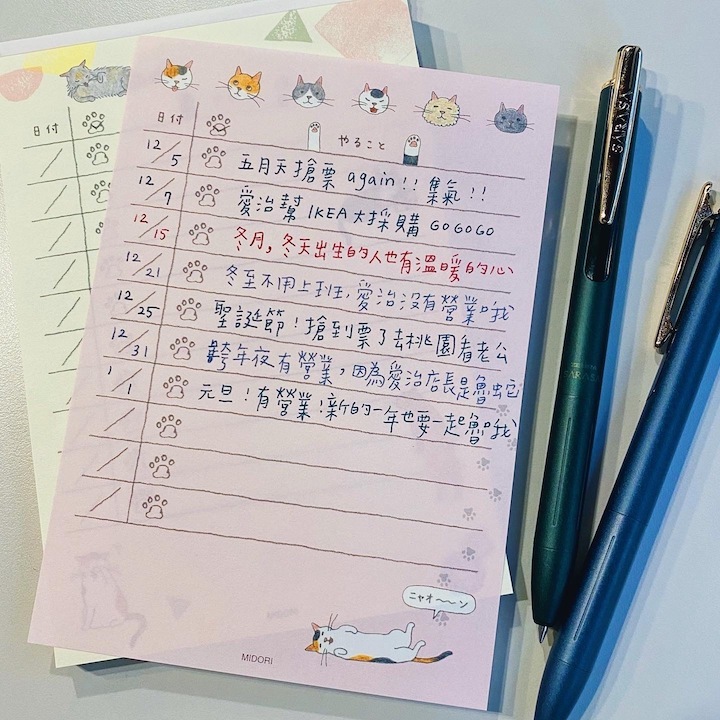 日付
日付
やること
12/5 五月天搶票 again!! 集氣!!
12/7 愛治幫 IKEA 大採購 GO GO GO
12/15 冬月,冬天出生的人也有溫暖的心
12/21 冬至不用上班,愛治沒有營業哦
12/25 聖誕節!搶到票了去桃園看老公
12/31 跨年夜有營業,因為愛治店長是魯蛇
1/1 元旦!有營業!新的一年也要一起魯哦
ニャオ〜〜ン
MIDORI
SARASA